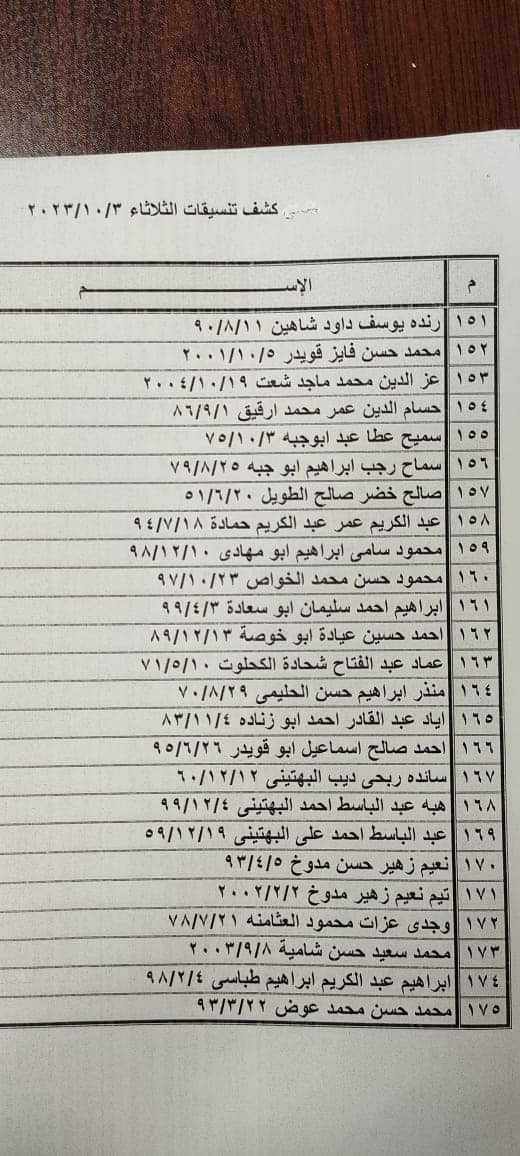 كشف تنسيقات الثلاثاء ٢٠٢٣/١٠/٣
م الإســـــــــم
١٥١ رنده يوسف داود شاهين ٩٠/٨/١١
١٥٢ محمد حسن فايز قويدر ٢٠٠١/١٠/٥
١٥٣ عز الدين محمد ماجد شعت ٢٠٠٤/١٠/١٩
١٥٤ حسام الدين عمر محمد ارقيق ٨٦/٩/١
١٥٥ سميح عطا عبد ابوجبه ٧٥/١٠/٣
١٥٦ سماح رجب ابراهيم ابو جبه ٧٩/٨/٢٥
١٥٧ صالح خضر صالح الطويل ٥١/٦/٢٠
١٥٨ عبد الكريم عمر عبد الكريم حمادة ٩٤/٧/١٨
١٥٩ محمود سامى ابراهيم ابو مهادى ٩٨/١٢/١٠
١٦٠ محمود حسن محمد الخواص ٩٧/١٠/٢٣
١٦١ ابراهيم احمد سليمان ابو سعادة ٩٩/٤/٣
١٦٢ احمد حسين عيادة ابو خوصة ٨٩/١٢/١٣
١٦٣ عماد عبد الفتاح شحادة الكحلوت ٧١/٥/١٠
١٦٤ منذر ابراهيم حسن الحليمى ٧٠/٨/٢٩
١٦٥ اياد عبد القادر احمد ابو زناده ٨٣/١١/٤
١٦٦ احمد صالح اسماعيل ابو قويدر ٩٥/٦/٢٦
١٦٧ سانده ربحى ديب البهتينى ٦٠/١٢/١٢
١٦٨ هبه عبد الباسط احمد البهتينى ٩٩/١٢/٤
١٦٩ عبد الباسط احمد على البهتينى ٥٩/١٢/١٩
١٧٠ نعيم زهير حسن مدوخ ٩٣/٤/٥
١٧١ تيم نعيم زهير مدوخ ٢٠٠٢/٢/٢
١٧٢ وجدى عزات محمود العثامنه ٧٨/٧/٢١
١٧٣ محمد سعيد حسن شامية ٢٠٠٣/٩/٨
١٧٤ ابراهيم عبد الكريم ابراهيم طباسى ٩٨/٢/٤
١٧٥ محمد حسن محمد عوض ٩٣/٣/٢٢